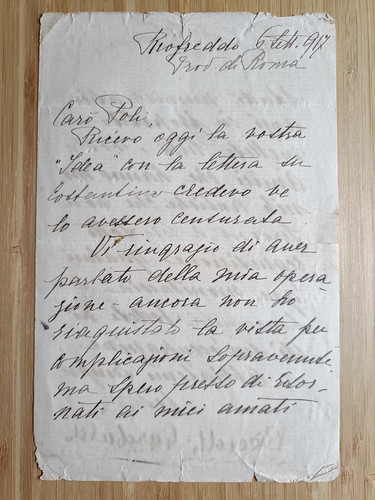 Riofreddo 6 Sett. 917
Prov di Roma
Caro Poli,
Ricevo oggi la vostra
"Idea" con la lettera su
Costantino credevo ve
lo avessero censurata
Vi ringrazio di aver
parlato della mia opera
zione - ancora non ho
riaquistato la vista per
complicazioni sopravenute
ma spero presto di
ai miei amati